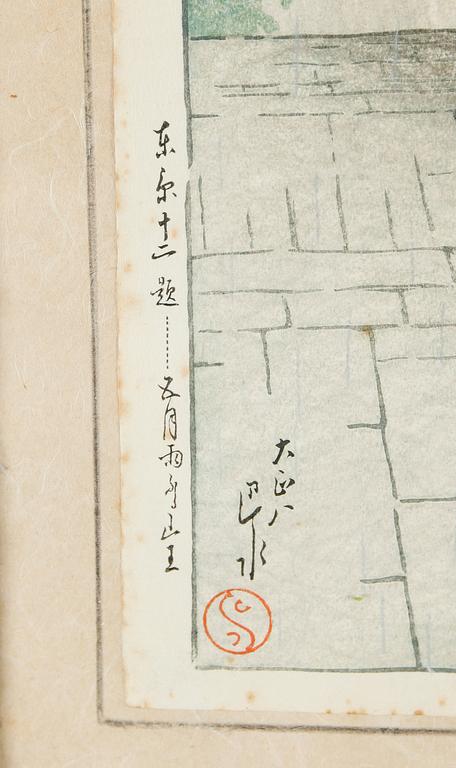 東京十二題………五月雨ふる山王
大正八
巴水